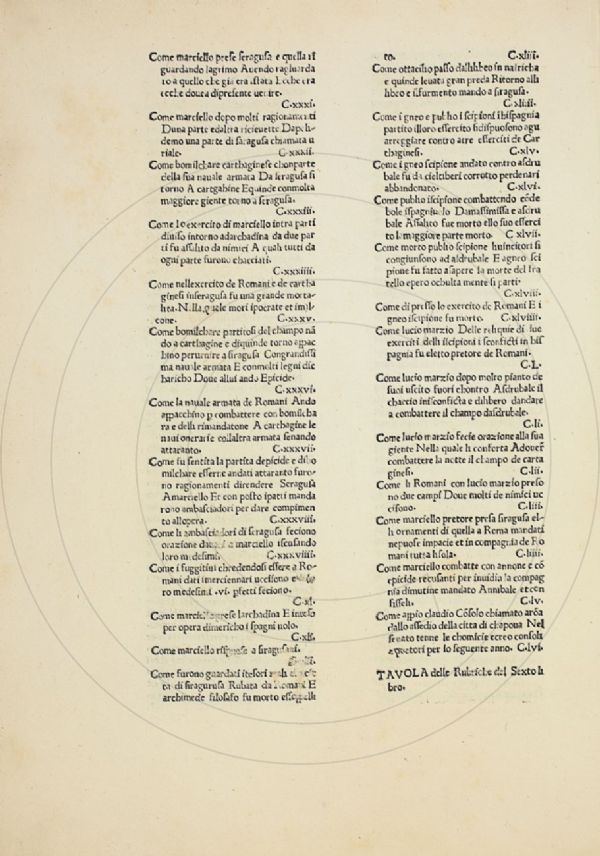 Come marciello prese seragusa e quella ri
guardando lagrimo Auendo raguarda
to a quello che gia era stata E cheche era
ecche doueua dipresente uenire.
C.xxxi.
Come marciello dopo molti ragionamenti
Duna parte edaltra riceuette Dapchi
demo una parte di saragusa chiamata u
riale. C.xxxii.
Come bomilchare carthaginese chonparte
della sua nauale armata Da seragusa si
torno A cartagine Equinde conmolta
maggiore giente torno a seragusa.
C.xxxiii.
Come lo exercito di marciello intra parti
diuiso intorno adarchadina da due par
ti fu assalito da nimici A quali tutti da
ogni parte furono chacciati.
C.xxxiiii.
Come nellexercito de Romani e de cartha
ginesi inseragusa fu una grande morta
lita. Nella quale mori ipocrate et imil
cone. C.xxxv.
Come bomilchare partitosi del champo na
do a carthagine e diquinde torno apac
hino peruenire a siragusa Congrandissi
ma nauale armata E conmolti legni di
charicho Doue allui ando Epicide.
C.xxxvi.
Come la nauale armata de Romani Ando
appacchino p combattere con bomilcha
ra e delli rimandatone A carthagine le
naui onerarie collaltra armata senando
attaranto. C.xxxvii.
Come fu sentita la partita depicide e di bo
milchare essere andati attaranto furo
no ragionamenti direndere Seragusa
Amarciello Et con posto ipatti manda
rono ambasciadori per dare compimen
to allopera. C.xxxviii.
Come li ambasciadori di seragusa feciono
oratione a marciello iscusando
loro medesimi. C.xxxviiii.
Come i fuggitiui chredendosi essere a Ro
mani dati imercennari uccisono
ro medesimi .vi. pfetti feciono.
C.xl.
Come marciello prese larchadina E inteso
per opera dimericho i spagnuolo.
C.xli.
Come marciello rispuose a siragusani.
Come furono guardati itesori
ta di siragusa Rubata da Romani E
archimede filosafo fu morto essepelli
to. C.xliii.
Come ottacilio passo dallilibeo in nafricha
e quinde leuata gran preda Ritorno alli
libeo e ilformento mando a siragusa.
C.xliiii.
Come i gneo e publio iscipioni i hispagnia
partito illoro essercito sidispuosono agu
arreggiare contro atre esserciti de Car
thaginesi. C.xlv.
Come i gneo scipione andato contro asdru
bale fu da cieltiberi corrotto perdenari
abbandonato. C.xlvi.
Come publio iscipione combattendo conde
bole ispagniuolo Damassinissa e asdru
bale Assalito fue morto ello suo esserci
to la maggiore parte morto. C xlvii.
Come morto publio scipione li uincitori si
congiunsono ad asdrubale E agneo sci
pione fu fatto asapere la morte del fra
tello epero ochulta mente si parti.
C.xlviii.
Come di presso lo exercito de Romani E i
gneo iscipione fu morto. C.xlviiii.
Come lucio marzio Delle reliquie di due
exerciti delli iscipioni i sconfitti in his
pagnia fu eletto pretore de Romani.
C.L.
Come lucio marzio dopo molto pianto de
suoi uscito fuori chontro Asdrubale il
chaccio insconficta e dilibero dandare
a combattere il champo dasdrubale.
C.li.
Come lucio marzio fecie orazione alla sua
giente Nella quale li conforta Adouer
combattere la notte el champo de carta
ginesi. C.lii.
Come li Romani con lucio marzio preso
no due campi Doue molti de nimici uc
cisono. C.liii.
Come marciello pretore presa siragusa el
li ornamenti di quella a Roma mandati
nepuose impacie et in compagnia de Ro
mani tutta lisola. C.liiii.
Come marciello combatte con annone e cō
epicide recusanti per inuidia la compag
nia dimutine mandato Annibale et con
fisseli. C.lv.
Come appio claudio Cōsolo chiamato aroā
dallo assedio della citta di chapoua Nel
senato tenne le chomicie ecreo consoli
eppretori per lo seguente anno. C.lvi.
TAVOLA delle Rubriche del Sexto li
bro.